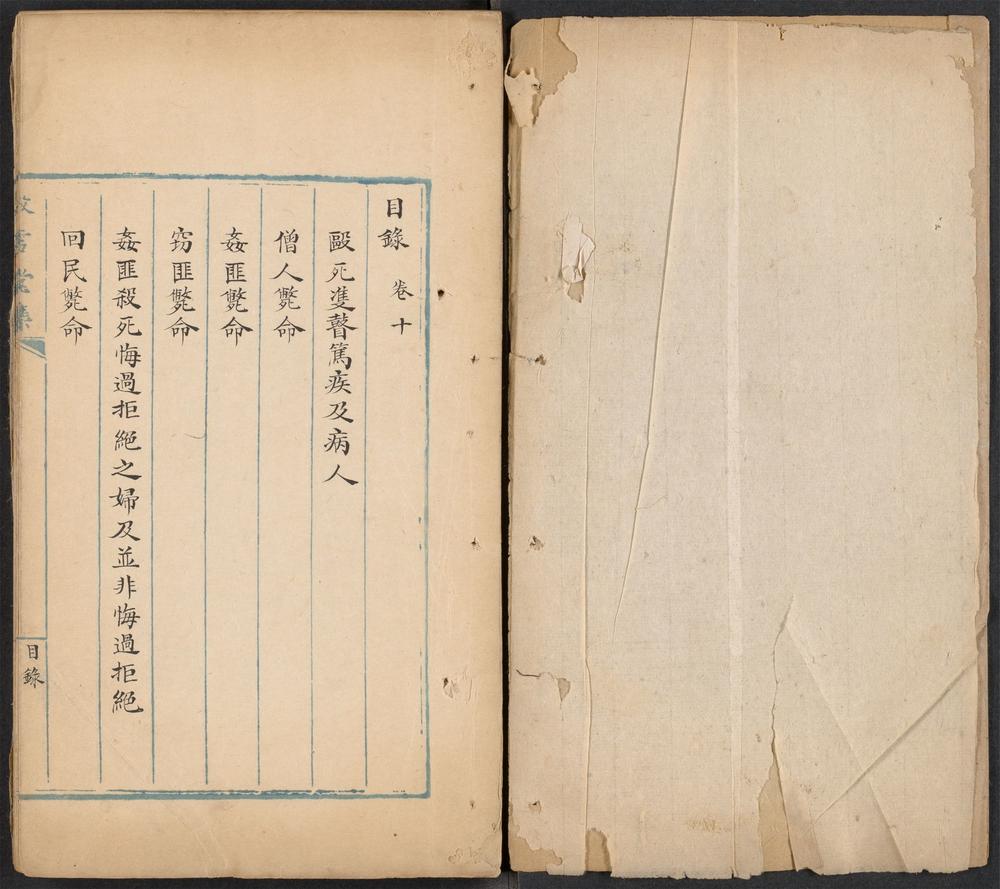 目錄 卷十
毆死隻瞽篤疾及病人
僧人斃命
姦匪斃命
窃匪斃命
姦匪殺死悔過拒絕之婦及並非悔過拒絕
回民斃命
雪堂集
目錄